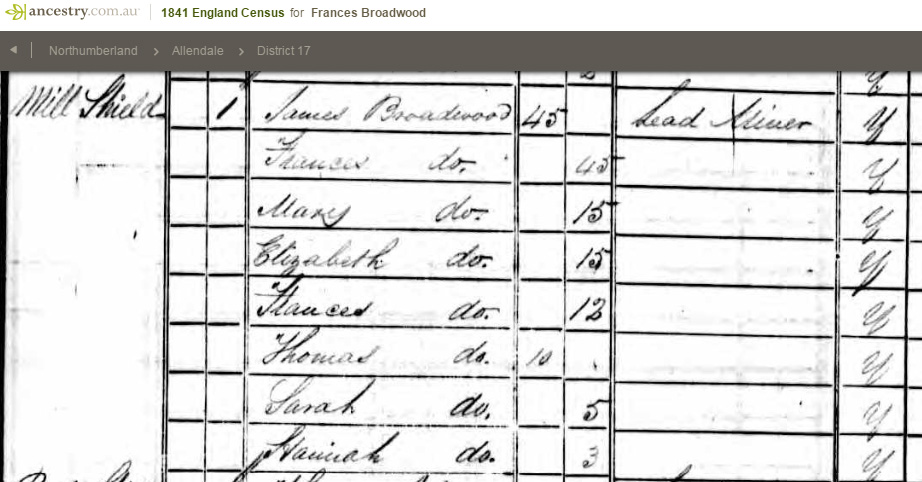 ancestry.com.au 1841 England Census for Frances Broadwood
Northumberland Allendale District 17
Mill Shield 1 James Broadwood 45 Lead Miner Y
Frances do. 45 Y
Mary do. 15 Y
Elizabeth do. 15 Y
Frances do. 12 Y
Thomas do. 10 Y
Sarah do. 5 Y
Hannah do. 3 Y